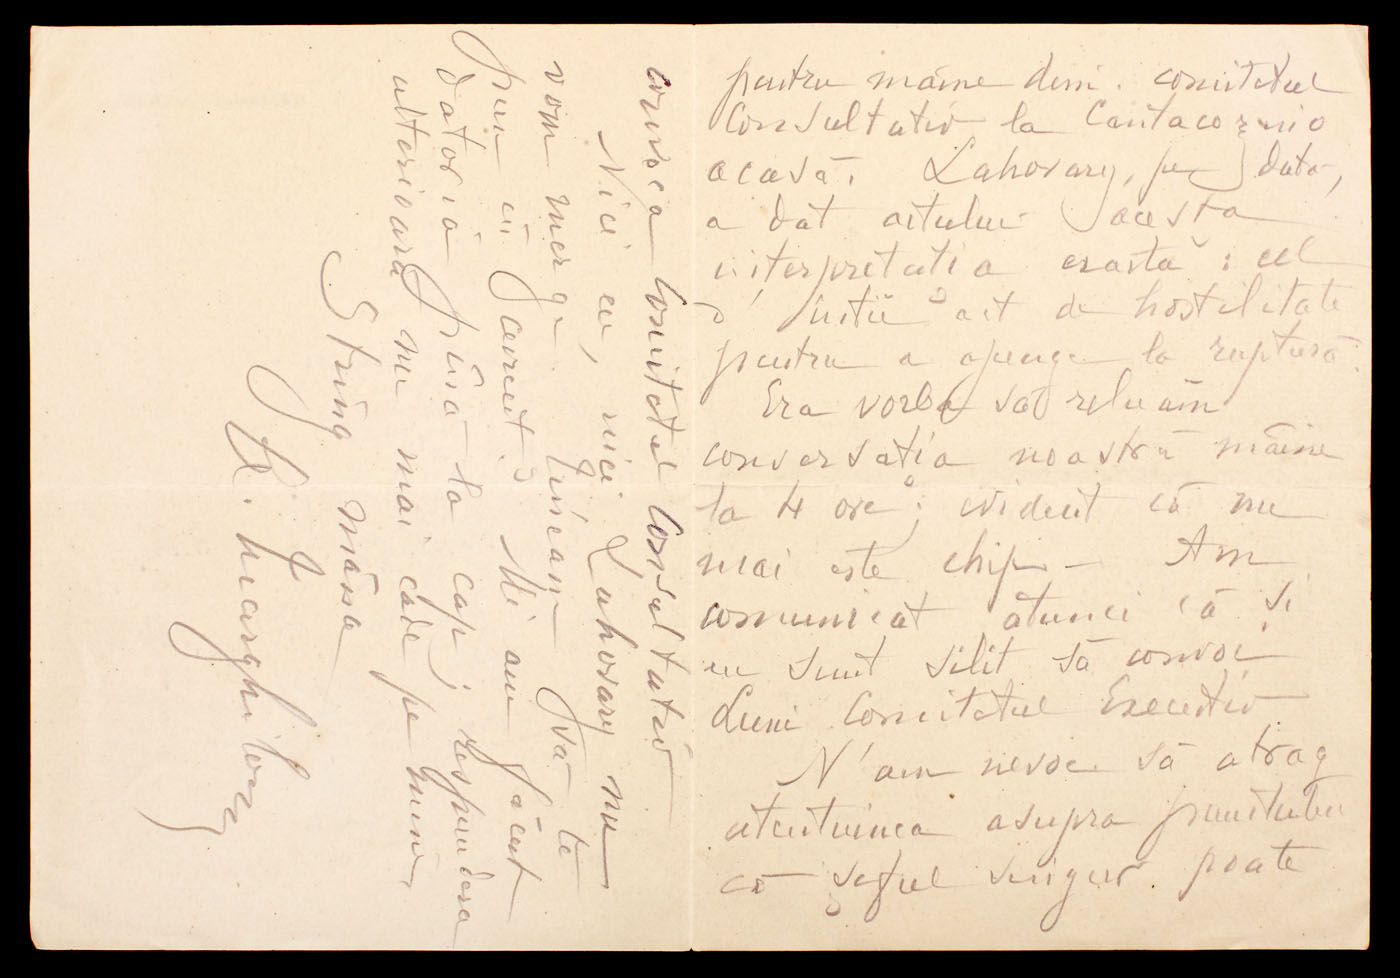 pentru mâine dim. comitetul
Consultativ la Cantacozino
acasă. Lahovary, pe dată,
a dat actului acesta
interpretatia exactă: cel
d' întîi act de hostilitate
pentru a ajunge la ruptură.
Era vorba să reluăm
conversatia noastră mâine
la 4 ore; evident că nu
mai este chip – Am
comunicat atunci că și
eu sunt silit să convoc
Luni Comitetul Executiv
N'am nevoe să atrag
atentiunea asupra punctului
că șeful singur poate
convoca Comitetul Consultativ
Nici eu, nici Lahovary nu
vom merge. Tineam să te
pun în curent. Mi am făcut
datoria pînă la cap; respunderea
ulterioară nu mai cade pe mine.
Strîng mâna
Al. Marghiloman